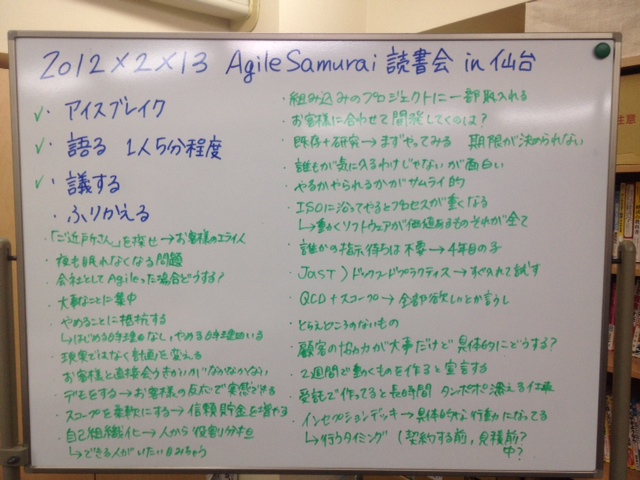 2012×2×13 Agile Samurai 読書会 in 仙台
✓・アイスブレイク
✓・語る 1人5分程度
✓・議する
・ふりかえる
・「ご近所さん」を探せ→お客様のエライ人
・夜も眠れなくなる問題
・会社としてAgileった場合どうする?
・大事なことに集中
・やめることに抵抗する
・現実ではなく計画を変える
・お客様と直接会う
・デモをする→お客様の反応で実感できる
・スコープを柔軟にする→信頼貯金を増やす
・自己組織化→人から役割分担
↳できる人がいたい
・組み込みのプロジェクトに一部取入れる
・お客様に合わせて開発してくのは?
・既存+研究→まずやってみる 期限が決められない
・誰もが気に入るわけじゃないが面白い
・やるかやられるかがサムライ的
・ISOに沿ってやるとプロセスが重くなる
↳動くソフトウェアが価値あるものそれが全て
・誰かの指示待ちは不要→4年目の子
・JaSST)ドッグフードプラクティス→すぐ入れて試す
・QCD+スコープ→全部欲しいとか言うし
・とらえどころのないもの
・顧客の協力が大事だけど具体的にどうする?
・2週間で動くものを作ると宣言する
・受託で作ってると長時間 タンポポ添える仕事
・インセプションデッキ→具体的な行動になってる
↳行うタイミング(契約する前,見積前?
中?